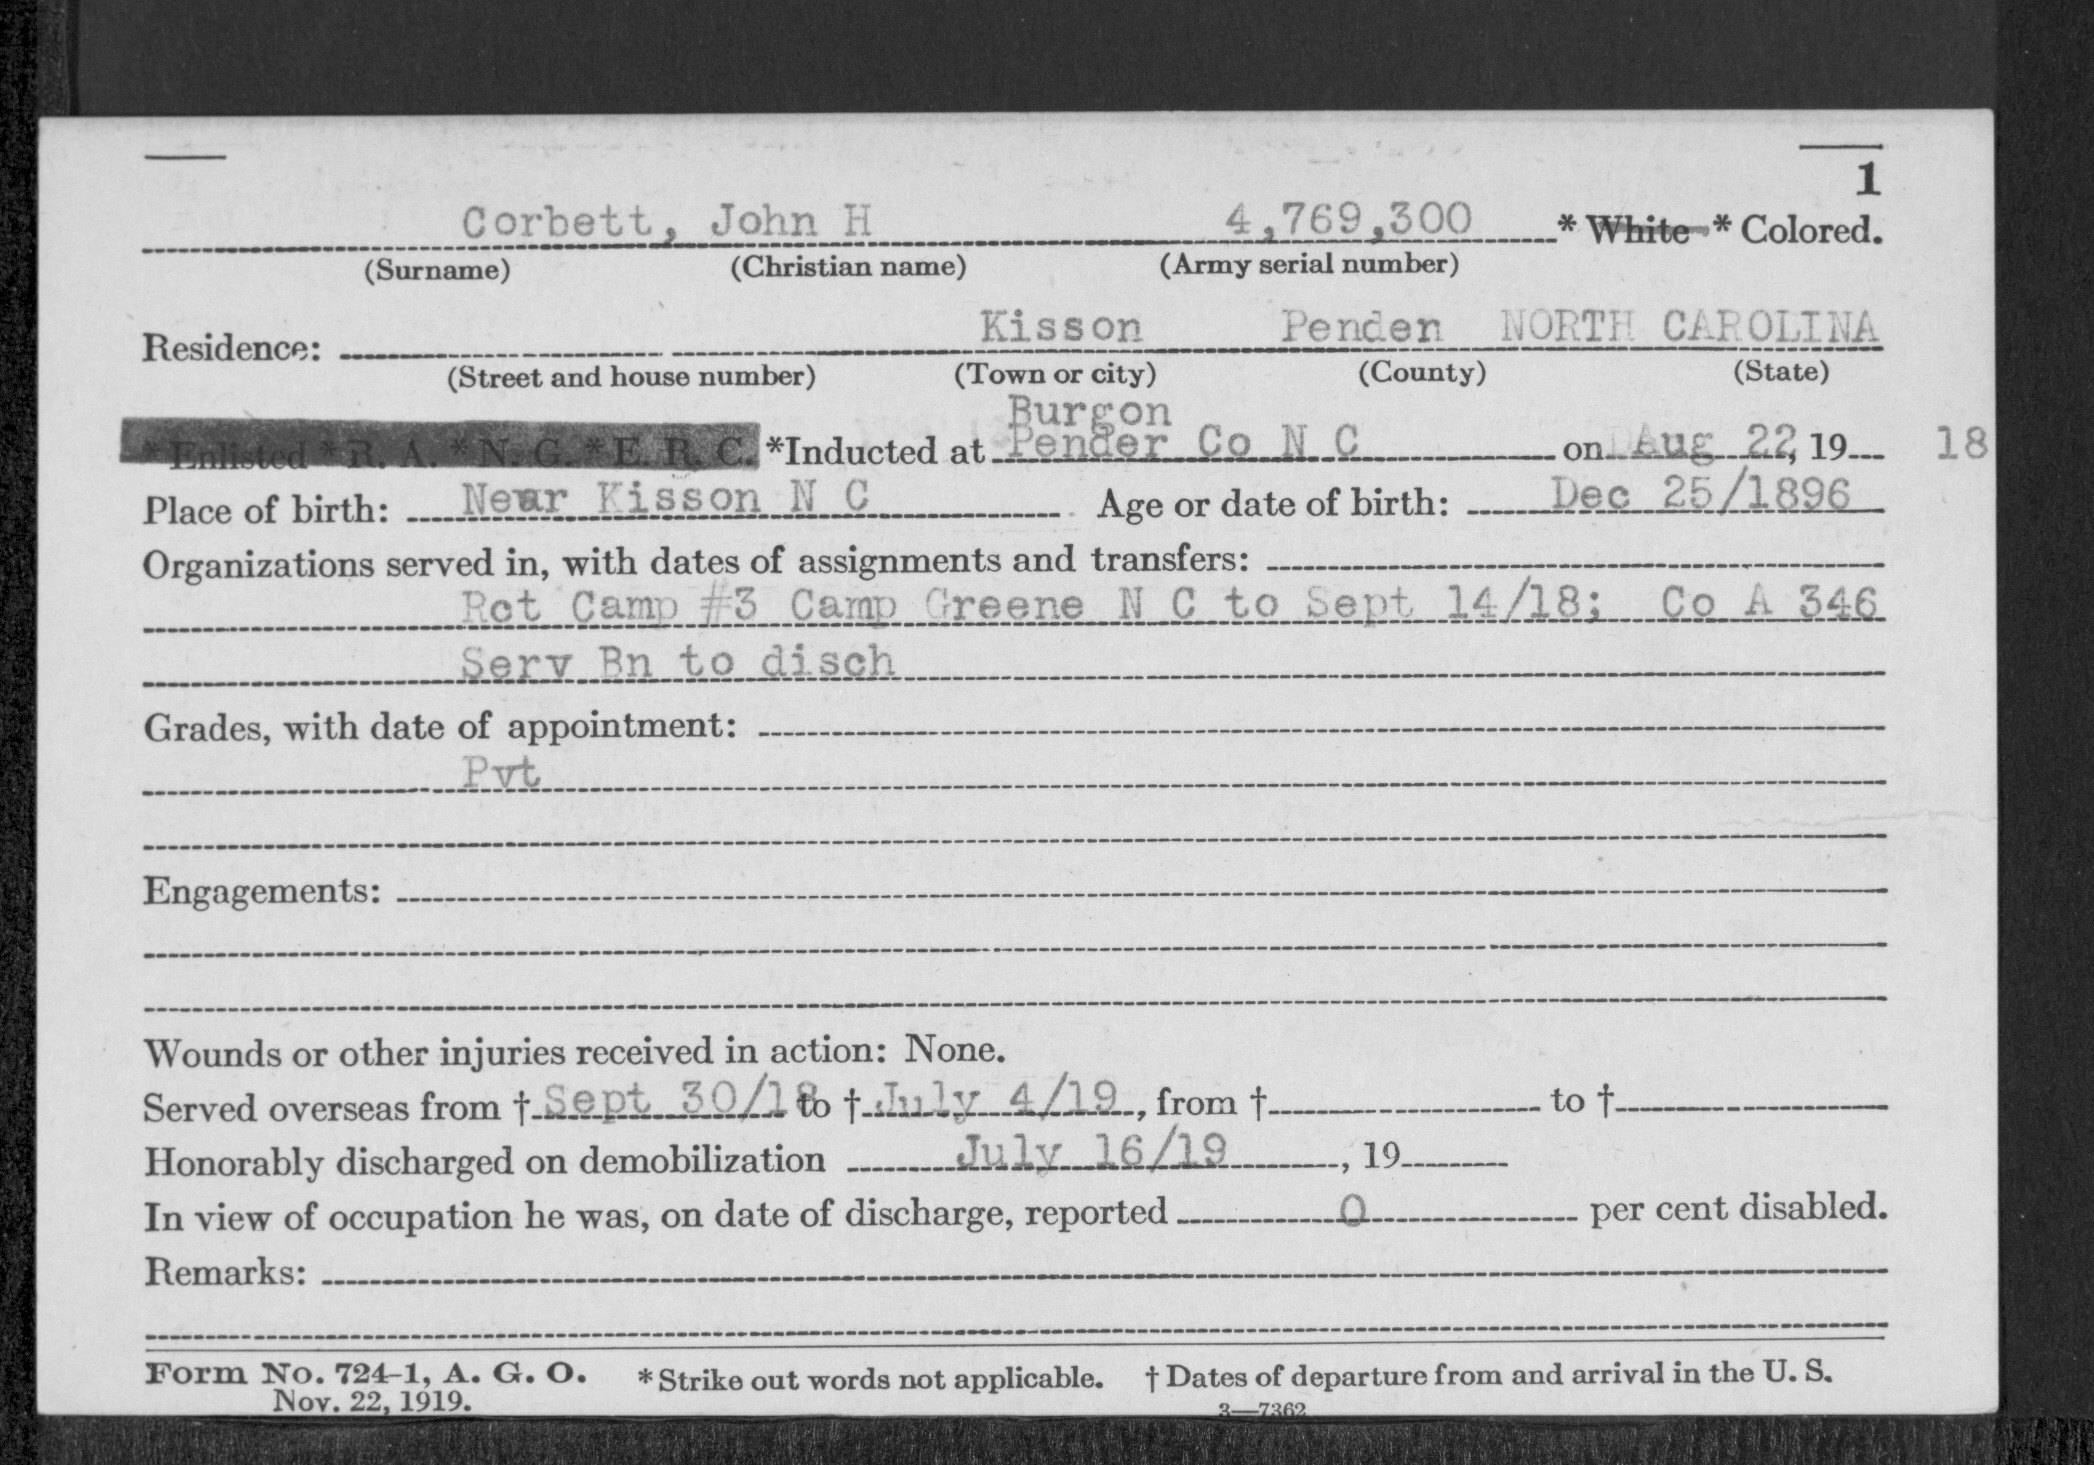 1
Corbett, John H 4,769,300 * White * Colored.
(Surname) (Christian name) (Army serial number)
Residence: Kisson Penden NORTH CAROLINA
(Street and house number) (Town or city) (County) (State)
Burgon
* Enlisted * R. A. * N. G. * E. R. C. *Inducted at Pender Co N C on Aug 22, 19 18
Place of birth: Near Kisson N C Age or date of birth: Dec 25/1896
Organizations served in, with dates of assignments and transfers:
Rct Camp #3 Camp Greene N C to Sept 14/18; Co A 346
Serv Bn to disch
Grades, with date of appointment:
Pvt
Engagements:
Wounds or other injuries received in action: None.
Served overseas from † Sept 30/18 to † July 4/19, from † to †
Honorably discharged on demobilization July 16/19, 19
In view of occupation he was, on date of discharge, reported 0 per cent disabled.
Remarks:
Form No. 724-1, A. G. O. * Strike out words not applicable. † Dates of departure from and arrival in the U. S.
Nov. 22, 1919. 3—7362